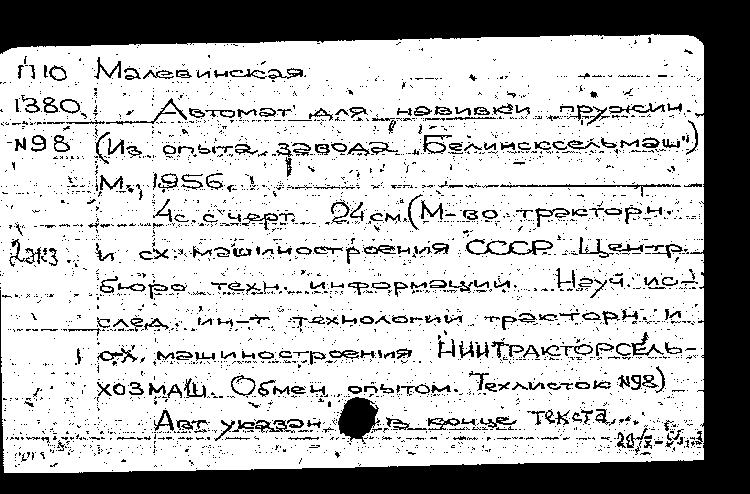 П10 Малевинская
1380 Автомат для навивки пружин.
№98 (Из опыта завода „Белинсксельмаш")
М., 1956.
4с. с черт. 24см. (М-во тракторн.
2экз. и с.х. машиностроения СССР. Центр.
бюро техн. информации. Науч. ис-
след. ин-т технологии тракторн. и
с-х. машиностроения НИИТРАКТОРСЕЛЬ-
ХОЗМАШ. Обмен опытом. Техлисток №98)
Авт указан в конце текста.